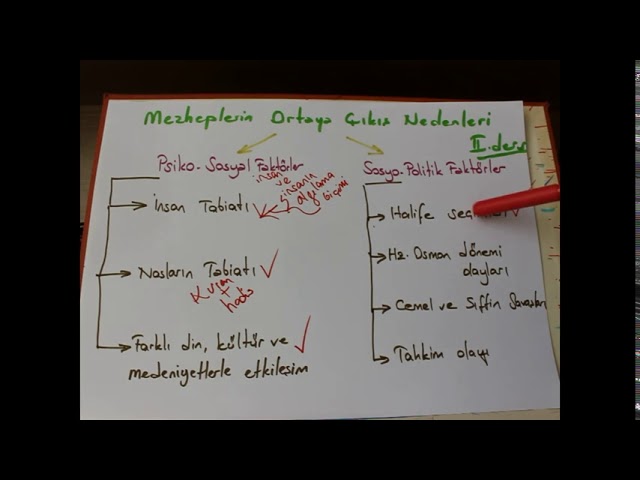 Mezheplerin Ortaya Çıkış Nedenleri
II. ders
Psiko-Sosyal Faktörler
İnsan Tabiatı
insan
ve
insanın
algılama
biçimi
Nasların Tabiatı
Kuran
+
hadis
Farklı din, kültür ve
medeniyetlerle etkileşim
Sosyo-Politik Faktörler
Halife
Hz. Osman dönemi
olayları
Cemel ve Sıffin Savaşları
Tahkim olayı